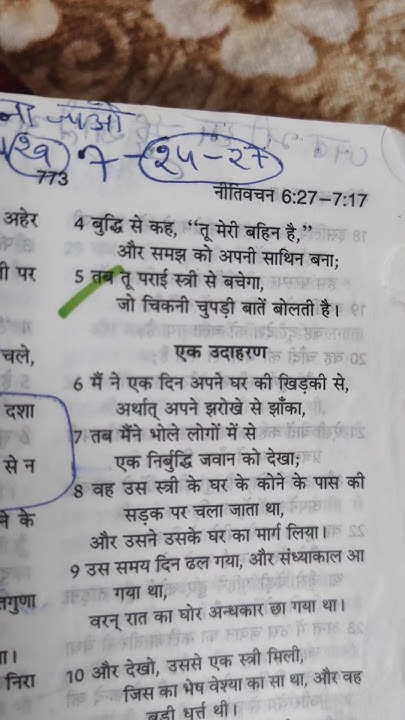 ना
29 7 - 25-27
773
नीतिवचन 6:27-7:17
अहेर
ी पर
चले,
दशा
से न
ने के
तगुणा
ा।
निरा
4 बुद्धि से कह, “तू मेरी बहिन है,”
और समझ को अपनी साथिन बना;
5 तब तू पराई स्त्री से बचेगा,
जो चिकनी चुपड़ी बातें बोलती है।
एक उदाहरण
6 मैं ने एक दिन अपने घर की खिड़की से,
अर्थात् अपने झरोखे से झाँका,
7 तब मैंने भोले लोगों में से
एक निर्बुद्धि जवान को देखा;
8 वह उस स्त्री के घर के कोने के पास की
सड़क पर चला जाता था,
और उसने उसके घर का मार्ग लिया।
9 उस समय दिन ढल गया, और संध्याकाल आ
गया था,
वरन् रात का घोर अन्धकार छा गया था।
10 और देखो, उससे एक स्त्री मिली,
जिस का भेष वेश्या का सा था, और वह
बड़ी धूर्त्त थी।